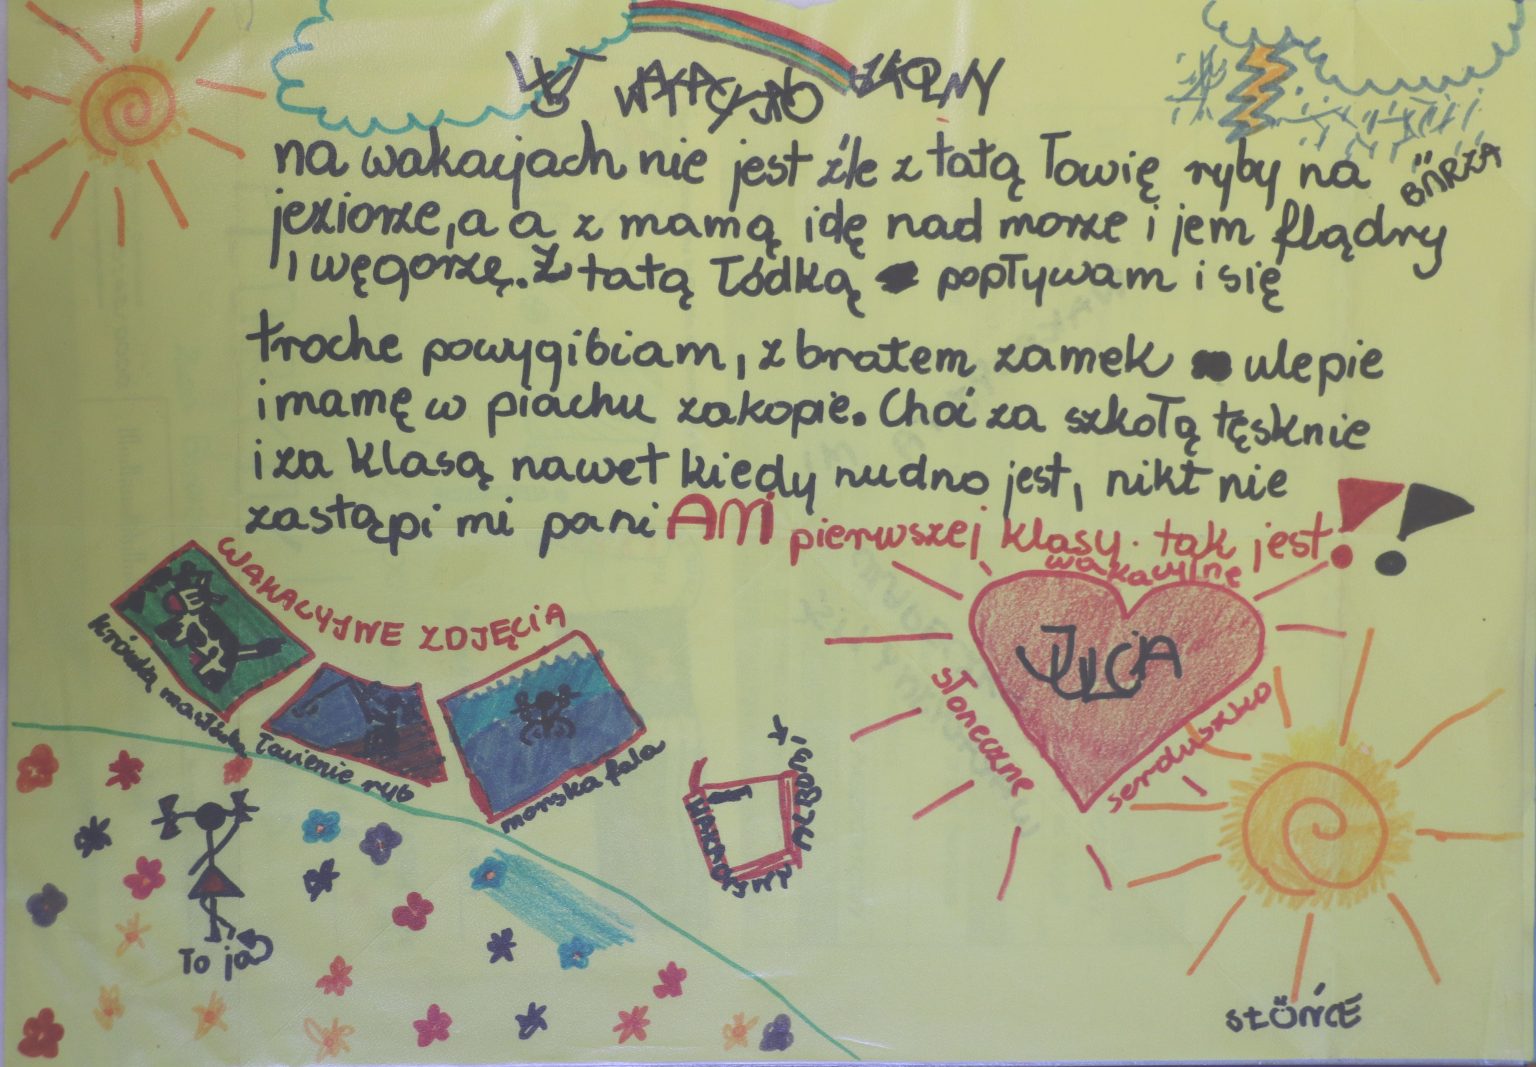 LIST WAKACYJNO
na wakacjach nie jest źle z tatą Łowię ryby na
BURZA
jeziorze, a a z mamą idę nad morze i jem flądry
i węgorzę. Z tatą Łódką popływam i się
troche powygibiam, z bratem zamek ulepie
i mamę w piachu zakopie. Choć za szkołą tęsknie
i za klasą nawet kiedy nudno jest, nikt nie
zastąpi mi pani AMI pierwszej klasy. tak jest!!
WAKACYJNE ZDJĘCIA
wakacyjne
JULCIA
słoneczne
serduszko
krówka mućka
Łowienie ryb
morska fala
WAKACYJNY
To ja
SŁOŃCE